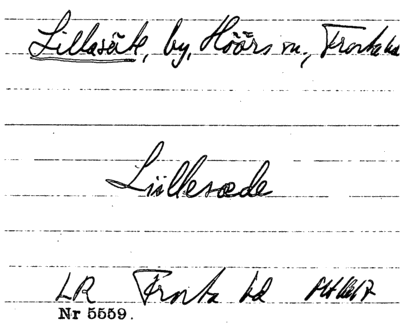 Lillasäte, by, Höörs sn., Frosta hd
Liillesæde
LR Frosta hd
Nr 5559.